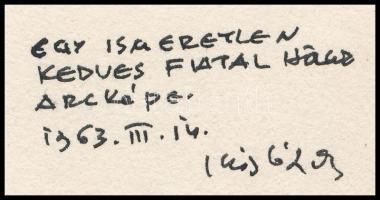 EGY ISMERETLEN
KEDVES FIATAL HÖLGY
ARCKÉPE.
1963. III. 14.